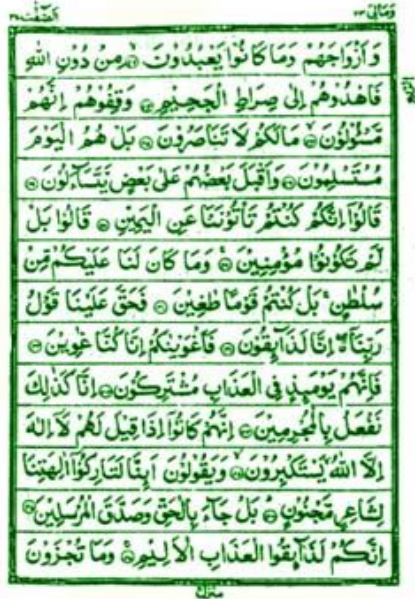 وَمَالِىَ ٢٣
الصّٰفّٰت ٣٧
وَاَزْوَاجَهُمْ وَمَا كَانُوْا يَعْبُدُوْنَ ۙ﴿۲۲﴾ مِنْ دُوْنِ اللّٰهِ
فَاهْدُوْهُمْ اِلٰى صِرَاطِ الْجَحِيْمِ ﴿۲۳﴾ وَقِفُوْهُمْ اِنَّهُمْ
مَّسْئُوْلُوْنَ ۙ﴿۲۴﴾ مَا لَكُمْ لَا تَنَاصَرُوْنَ ﴿۲۵﴾ بَلْ هُمُ الْيَوْمَ
مُسْتَسْلِمُوْنَ ﴿۲۶﴾ وَاَقْبَلَ بَعْضُهُمْ عَلٰى بَعْضٍ يَّتَسَآءَلُوْنَ ﴿۲۷﴾
قَالُوْۤا اِنَّكُمْ كُنْتُمْ تَاْتُوْنَنَا عَنِ الْيَمِيْنِ ﴿۲۸﴾ قَالُوْا بَلْ
لَّمْ تَكُوْنُوْا مُؤْمِنِيْنَ ۚ﴿۲۹﴾ وَمَا كَانَ لَنَا عَلَيْكُمْ مِّنْ
سُلْطٰنٍ ۚ بَلْ كُنْتُمْ قَوْمًا طٰغِيْنَ ﴿۳۰﴾ فَحَقَّ عَلَيْنَا قَوْلُ
رَبِّنَآ ۖ اِنَّا لَذَآئِقُوْنَ ﴿۳۱﴾ فَاَغْوَيْنٰكُمْ اِنَّا كُنَّا غٰوِيْنَ ﴿۳۲﴾
فَاِنَّهُمْ يَوْمَئِذٍ فِى الْعَذَابِ مُشْتَرِكُوْنَ ﴿۳۳﴾ اِنَّا كَذٰلِكَ
نَفْعَلُ بِالْمُجْرِمِيْنَ ﴿۳۴﴾ اِنَّهُمْ كَانُوْۤا اِذَا قِيْلَ لَهُمْ لَاۤ اِلٰهَ
اِلَّا اللّٰهُ يَسْتَكْبِرُوْنَ ۙ﴿۳۵﴾ وَيَقُوْلُوْنَ اَئِنَّا لَتَارِكُوْۤا اٰلِهَتِنَا
لِشَاعِرٍ مَّجْنُوْنٍ ﴿۳۶﴾ بَلْ جَآءَ بِالْحَقِّ وَصَدَّقَ الْمُرْسَلِيْنَ ﴿۳۷﴾
اِنَّكُمْ لَذَآئِقُوا الْعَذَابِ الْاَلِيْمِ ۚ﴿۳۸﴾ وَمَا تُجْزَوْنَ